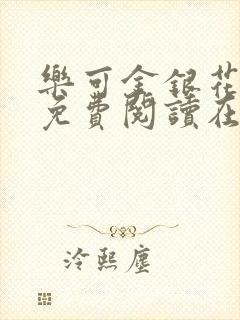 樂可金銀花
免費閱讀在
冷熙塵